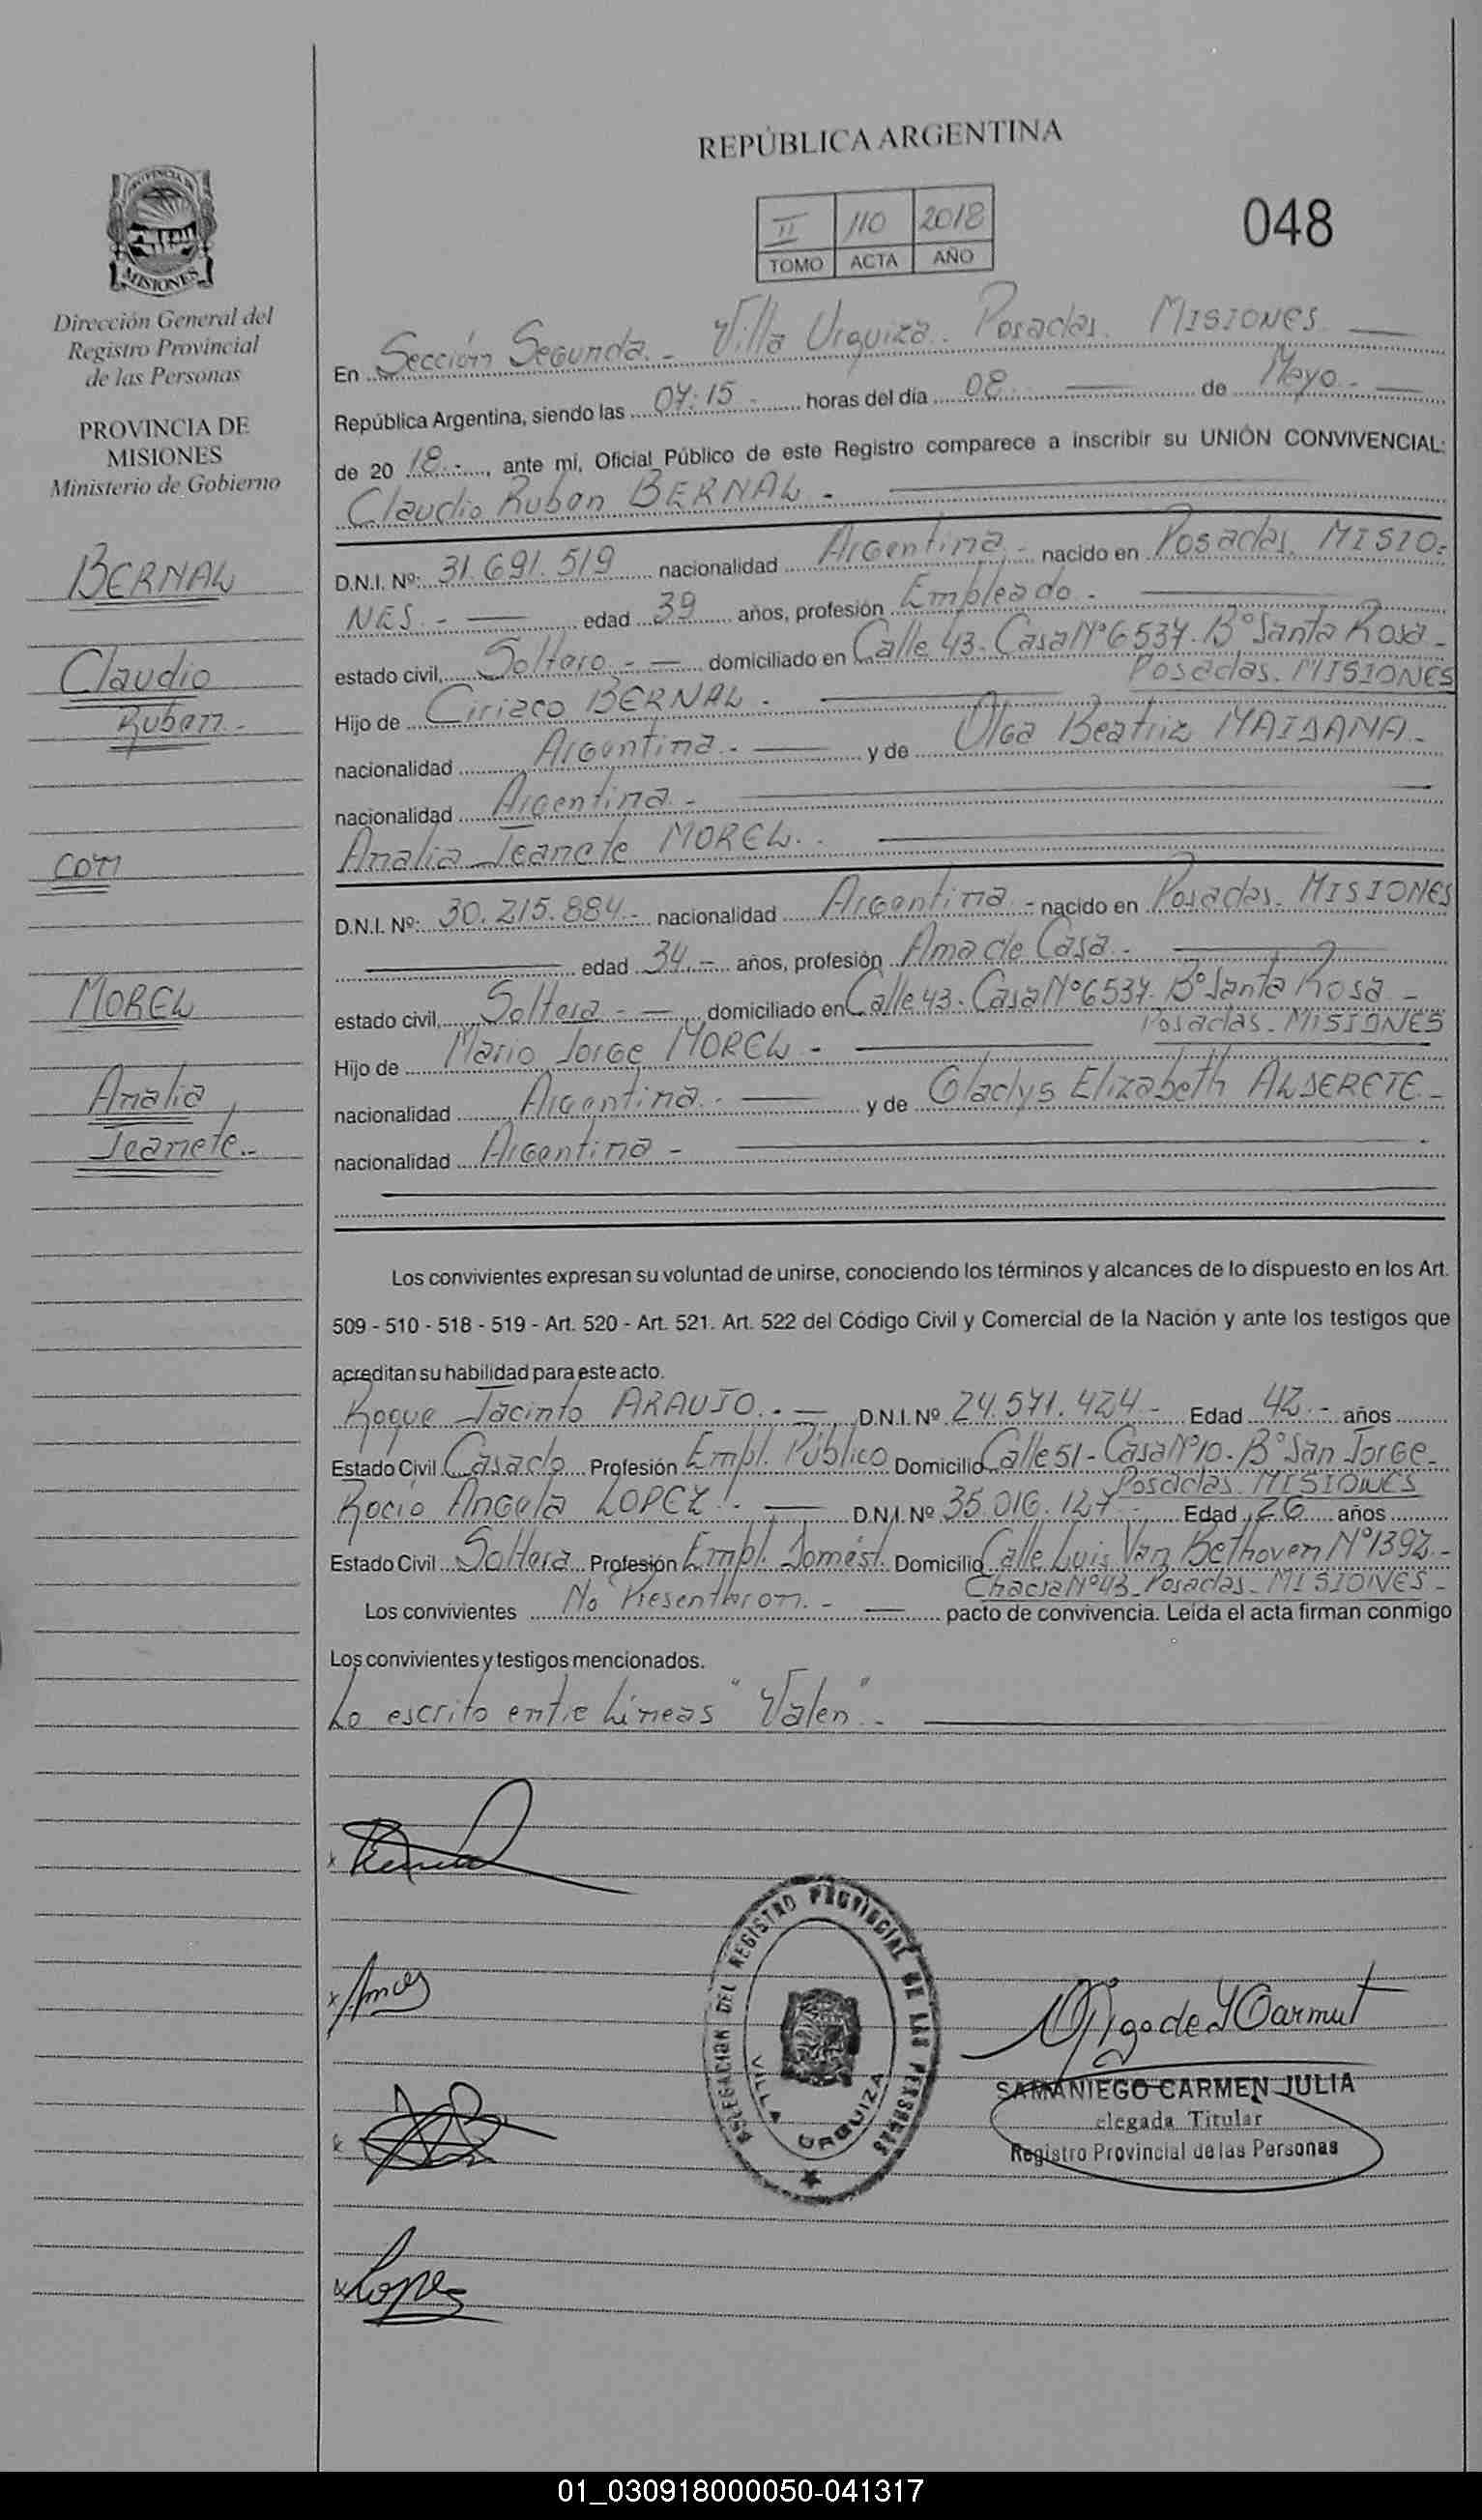 REPÚBLICA ARGENTINA
II 110 2018
TOMO ACTA AÑO
048
PROVINCIA DE
MISIONES
Dirección General del
Registro Provincial
de las Personas
PROVINCIA DE
MISIONES
Ministerio de Gobierno
BERNAL
Claudio
Ruben.-
con
MOREL
Analia
Jeanete.-
En Sección Segunda.- Villa Urquiza. Posadas. MISIONES
República Argentina, siendo las 07:15.- horas del día 08 de Mayo.-
de 20 18.-, ante mí, Oficial Público de este Registro comparece a inscribir su UNIÓN CONVIVENCIAL:
Claudio Ruben BERNAL.-
D.N.I. Nº: 31.691.519 nacionalidad Argentina.- nacido en Posadas. MISIO-
NES.- edad 39 años, profesión Empleado.-
estado civil, Soltero.- domiciliado en Calle 43. Casa Nº 6537. Bº Santa Rosa.-
Posadas. MISIONES
Hijo de Ciriaco BERNAL.-
nacionalidad Argentina.- y de Olga Beatriz MAIDANA.-
nacionalidad Argentina.-
Analia Jeanete MOREL.-
D.N.I. Nº: 30.215.884.- nacionalidad Argentina.- nacido en Posadas. MISIONES
edad 34.- años, profesión Ama de Casa.-
estado civil, Soltera.- domiciliado en Calle 43. Casa Nº 6537. Bº Santa Rosa.-
Posadas. MISIONES
Hijo de Mario Jorge MOREL.-
nacionalidad Argentina.- y de Gladys Elizabeth ALDERETE.-
nacionalidad Argentina.-
Los convivientes expresan su voluntad de unirse, conociendo los términos y alcances de lo dispuesto en los Art.
509 - 510 - 518 - 519 - Art. 520 - Art. 521. Art. 522 del Código Civil y Comercial de la Nación y ante los testigos que
acreditan su habilidad para este acto.
Roque Jacinto ARAUJO.- D.N.I. Nº 24.571.424.- Edad 42.- años
Estado Civil Casado Profesión Empl. Público Domicilio Calle 51 - Casa Nº 10. Bº San Jorge.-
Posadas. MISIONES
Rocío Angela LOPEZ.- D.N.I. Nº 35.016.127 Edad 26 años
Estado Civil Soltera Profesión Empl. Domést. Domicilio Calle Luis Van Bethoven Nº 1392.-
Chacra Nº 43. Posadas. MISIONES.-
Los convivientes No Presentaron.- pacto de convivencia. Leída el acta firman conmigo
Los convivientes y testigos mencionados.
Lo escrito entre Líneas "Valen".-
Lopez
DELEGACION DEL REGISTRO PROVINCIAL DE LAS PERSONAS
VILLA URQUIZA
SAMANIEGO CARMEN JULIA
elegada Titular
Registro Provincial de las Personas
01_030918000050-041317